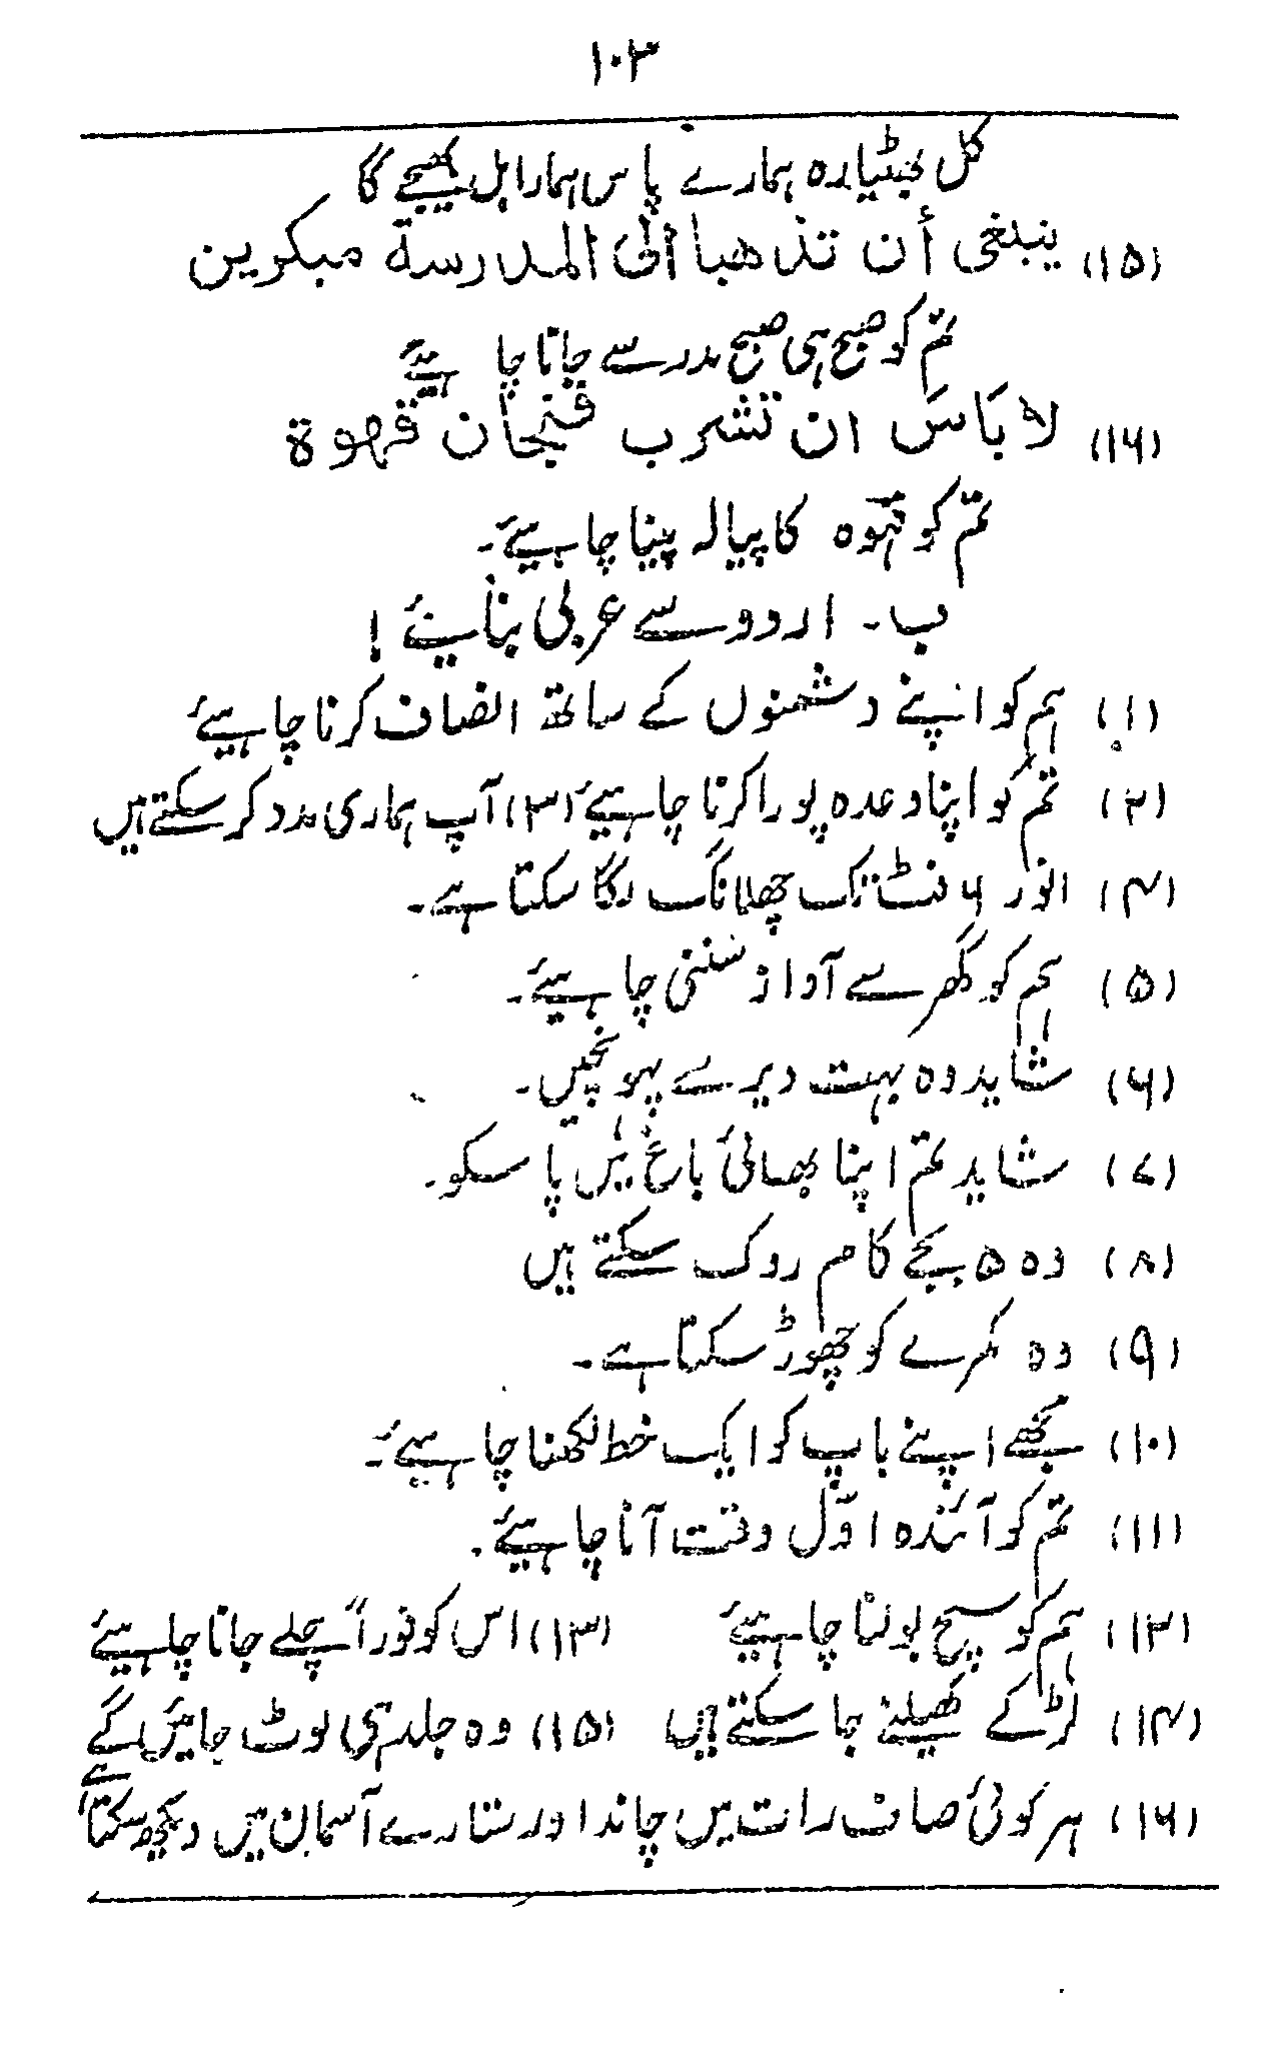 ۱۰۳
کل بھٹیارہ ہمارے پاس ہمارا بل بھیجے گا
(۱۵) ینبغی أن تذھبا الی المدرسة مبکرین
تم کو صبح ہی صبح مدرسے جانا چا ہیئے
(۱۶) لا بَاسَ ان تشرب فنجان قهوة
تم کو قہوہ کا پیالہ پینا چاہیئے۔
ب۔ اردو سے عربی بنایئے !
(۱) ہم کو اپنے دشمنوں کے ساتھ انصاف کرنا چاہیئے
(۲) تم کو اپنا وعدہ پورا کرنا چاہیئے (۳) آپ ہماری مدد کر سکتے ہیں
(۴) انور ۶ فٹ تک چھلانگ لگا سکتا ہے۔
(۵) ہم کو گھر سے آواز سننی چاہیئے۔
(۶) شاید وہ بہت دیر سے پہونچیں۔
(۷) شاید تم اپنا بھائی باغ میں پا سکو۔
(۸) وہ ۵ بجے کام روک سکتے ہیں
(۹) وہ کمرے کو چھوڑ سکتا ہے۔
(۱۰) مجھے اپنے باپ کو ایک خط لکھنا چاہیئے۔
(۱۱) تم کو آئندہ اوّل وقت آنا چاہیئے۔
(۱۲) ہم کو سچ بولنا چاہیئے (۱۳) اس کو فوراً چلے جانا چاہیئے
(۱۴) لڑکے کھیلنے جا سکتے ہیں (۱۵) وہ جلد ہی لوٹ جائیں گے
(۱۶) ہر کوئی صاف رات میں چاند اور ستارے آسمان میں دیکھ سکتا ہے